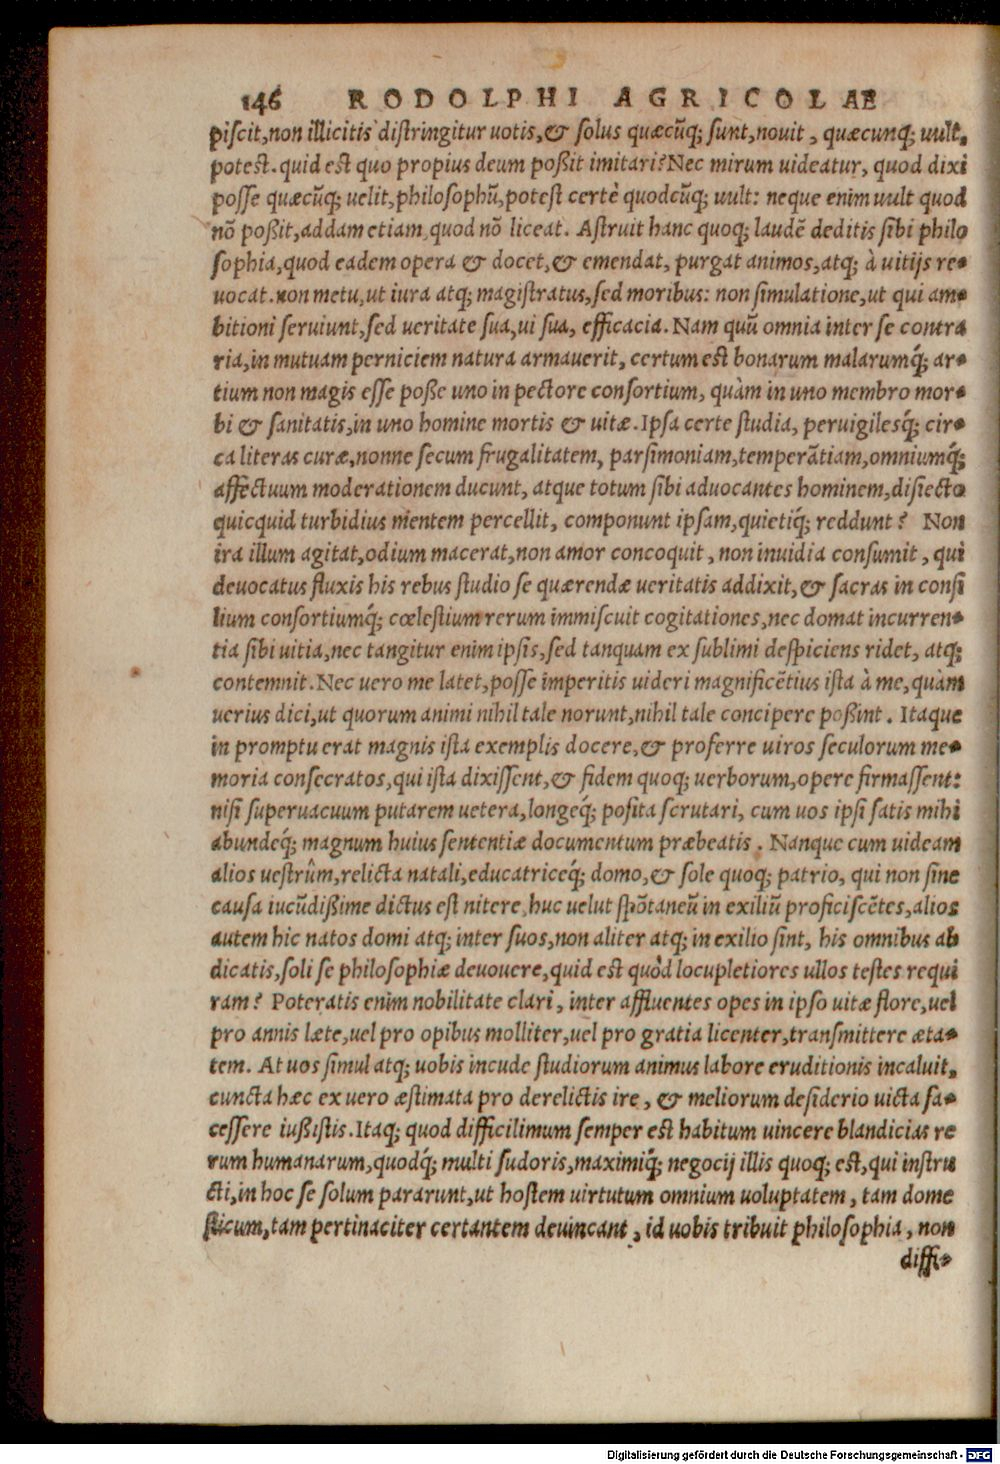 146 RODOLPHI AGRICOLAE
piscit, non illicitis distringitur uotis, & solus quæcũq; sunt, nouit, quæcunq; uult,
potest. quid est quo propius deum poßit imitari? Nec mirum uideatur, quod dixi
posse quæcũq; uelit, philosophũ, potest certè quodcũq; uult: neque enim uult quod
nõ poßit, addam etiam, quod nõ liceat. Astruit hanc quoq; laudẽ deditis sibi philo
sophia, quod eadem opera & docet, & emendat, purgat animos, atq; à uitijs re-
uocat. non metu, ut iura atq; magistratus, sed moribus: non simulatione, ut qui am-
bitioni seruiunt, sed ueritate sua, ui sua, efficacia. Nam quũ omnia inter se contra
ria, in mutuam perniciem natura armauerit, certum est bonarum malarumq́; ar-
tium non magis esse poße uno in pectore consortium, quàm in uno membro mor-
bi & sanitatis, in uno homine mortis & uitæ. Ipsa certe studia, peruigilesq́; cir-
ca literas curæ, nonne secum frugalitatem, parsimoniam, temperãtiam, omniumq́;
affectuum moderationem ducunt, atque totum sibi aduocantes hominem, disiecto
quicquid turbidius mentem percellit, componunt ipsam, quietiq́; reddunt? Non
ira illum agitat, odium macerat, non amor concoquit, non inuidia consumit, qui
deuocatus fluxis his rebus studio se quærendæ ueritatis addixit, & sacras in consi
lium consortiumq́; cœlestium rerum immiscuit cogitationes, nec domat incurren-
tia sibi uitia, nec tangitur enim ipsis, sed tanquam ex sublimi despiciens ridet, atq;
contemnit. Nec uero me latet, posse imperitis uideri magnificẽtius ista à me, quàm
uerius dici, ut quorum animi nihil tale norunt, nihil tale concipere poßint. Itaque
in promptu erat magnis ista exemplis docere, & proferre uiros seculorum me-
moria consecratos, qui ista dixissent, & fidem quoq; uerborum, opere firmassent:
nisi superuacuum putarem uetera, longeq́; posita scrutari, cum uos ipsi satis mihi
abundeq́; magnum huius sententiæ documentum præbeatis. Nanque cum uideam
alios uestrûm, relicta natali, educatriceq́; domo, & sole quoq; patrio, qui non sine
causa iucũdißime dictus est nitere, huc uelut spõtaneũ in exiliũ proficiscẽtes, alios
autem hic natos domi atq; inter suos, non aliter atq; in exilio sint, his omnibus ab
dicatis, soli se philosophiæ deuouere, quid est quòd locupletiores ullos testes requi
ram? Poteratis enim nobilitate clari, inter affluentes opes in ipso uitæ flore, uel
pro annis læte, uel pro opibus molliter, uel pro gratia licenter, transmittere æta-
tem. At uos simul atq; uobis incude studiorum animus labore eruditionis incaluit,
cuncta hæc ex uero æstimata pro derelictis ire, & meliorum desiderio uicta fa-
cessere iußistis. Itaq; quod difficilimum semper est habitum uincere blandicias re
rum humanarum, quodq́; multi sudoris, maximiq́; negocij illis quoq; est, qui instru
cti, in hoc se solum pararunt, ut hostem uirtutum omnium uoluptatem, tam dome
sticum, tam pertinaciter certantem deuincant, id uobis tribuit philosophia, non
diffi-
Digitalisierung gefördert durch die Deutsche Forschungsgemeinschaft - DFG